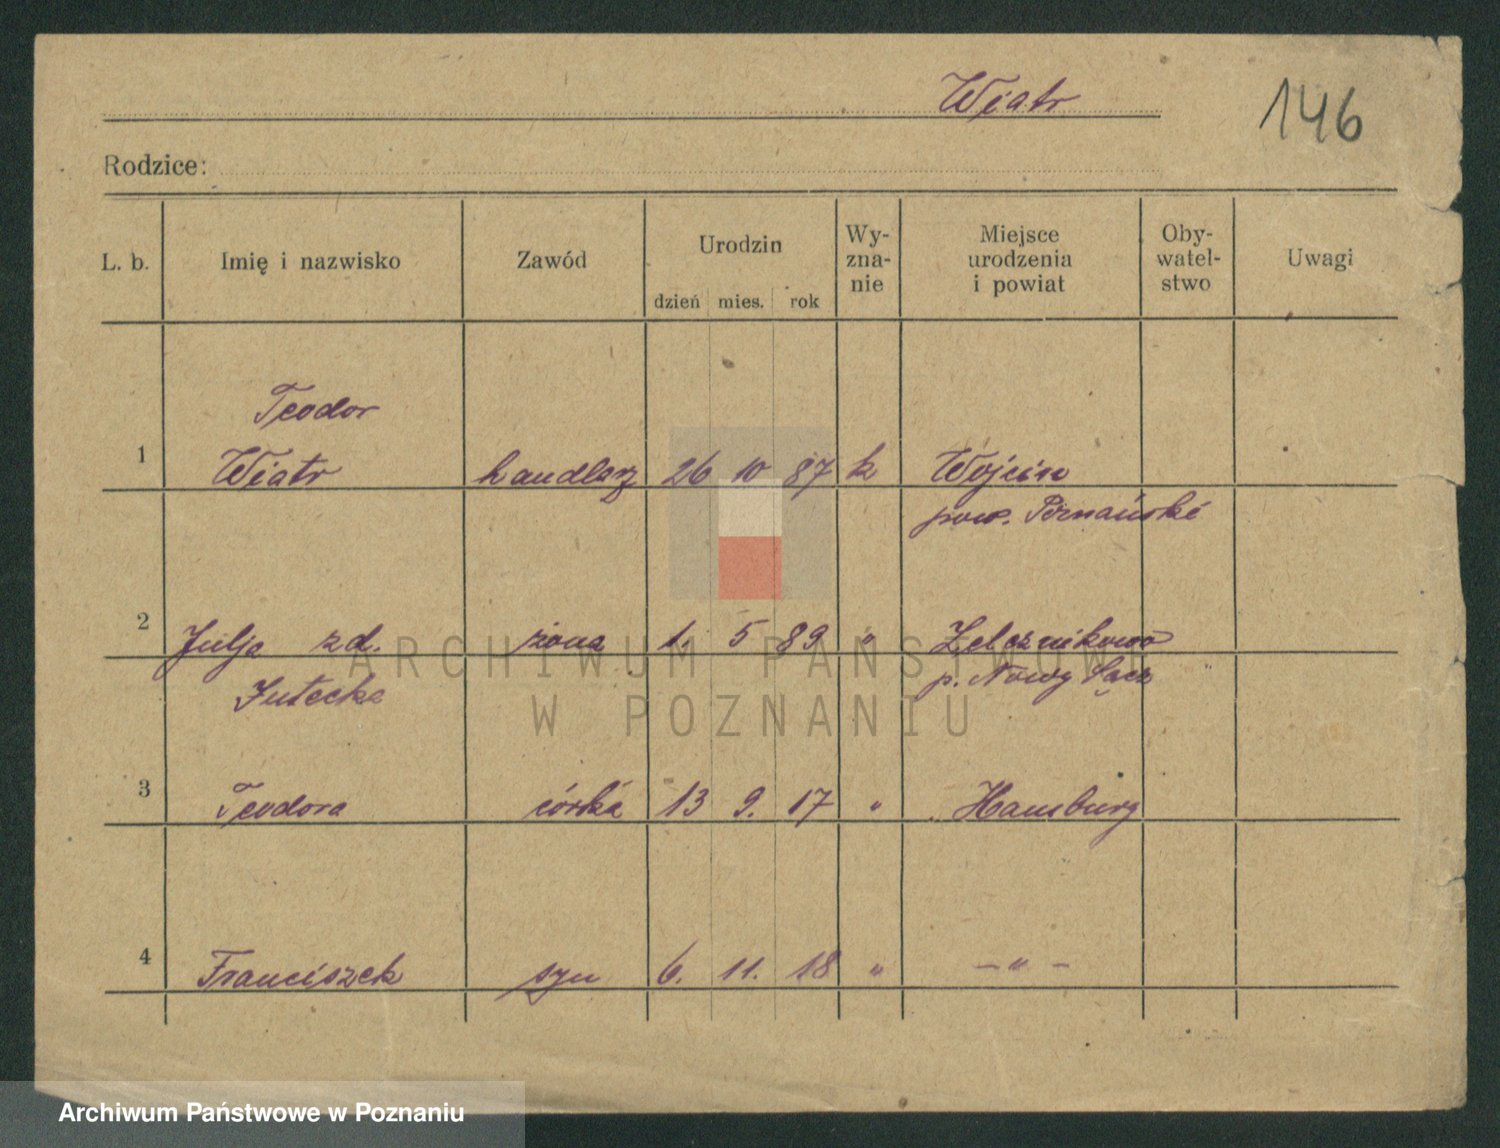 Wiatr
146
Rodzice:
L. b. Imię i nazwisko Zawód Urodzin dzień mies. rok Wy-zna-nie Miejsce urodzenia i powiat Oby-watel-stwo Uwagi
Teodor
1 Wiatr handlarz 26 10 87 k Wojcin
pow.
2 Julja zd. żona 1. 5 89 " Żeleznikowo
p. Nowy Sącz
3 Teodora córka 13 9. 17 " Hamburg
4 Franciszek syn 6. 11. 18 " – " –
ARCHIWUM PAŃSTWOWE
W POZNANIU
Archiwum Państwowe w Poznaniu